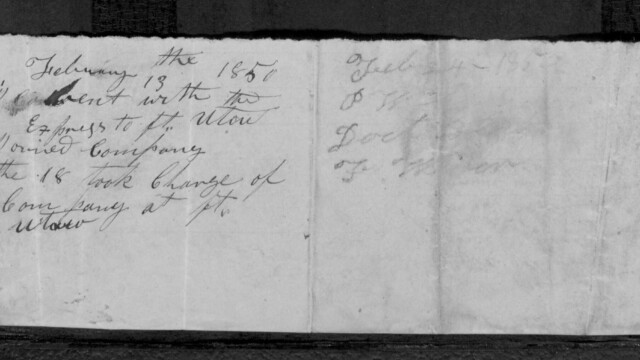 February the 1850
13
went with the
Express to ft. Utaw
Joined Company
the 18 took Charge of
Company at ft.
Utaw
Feb
Doct